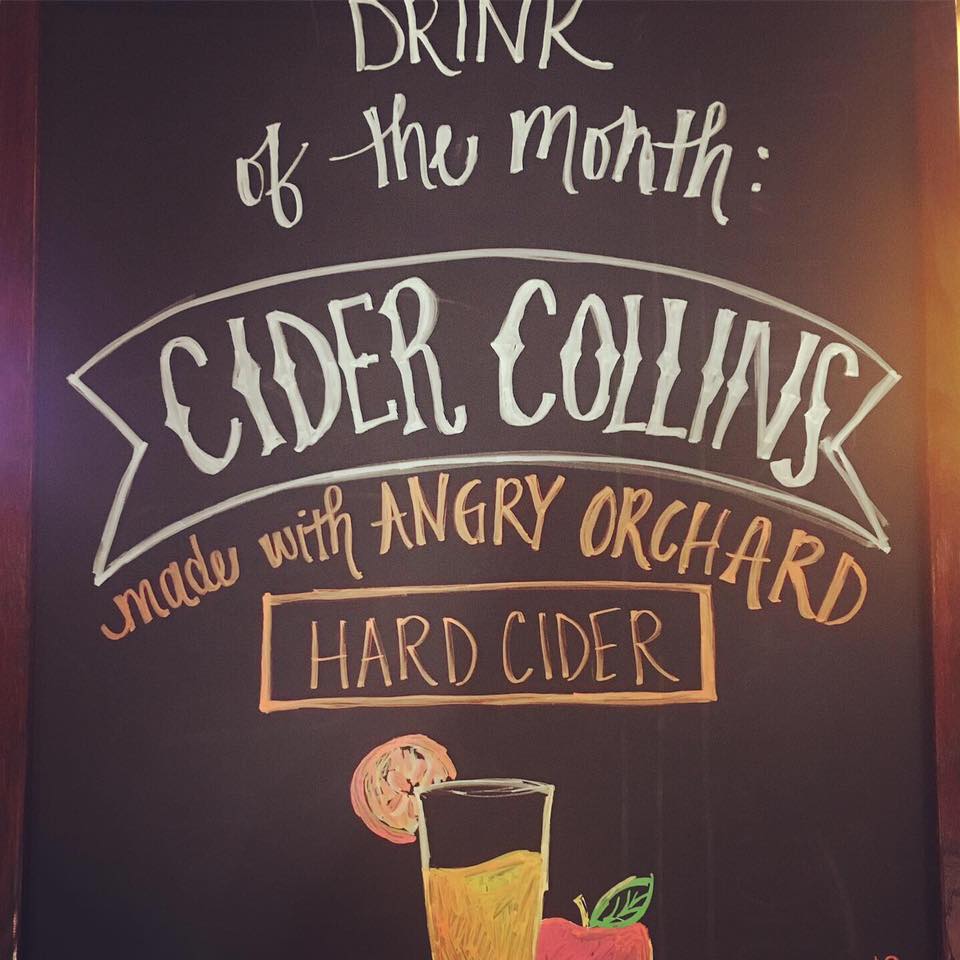 DRINK
of the month:
CIDER COLLINS
made with ANGRY ORCHARD
HARD CIDER